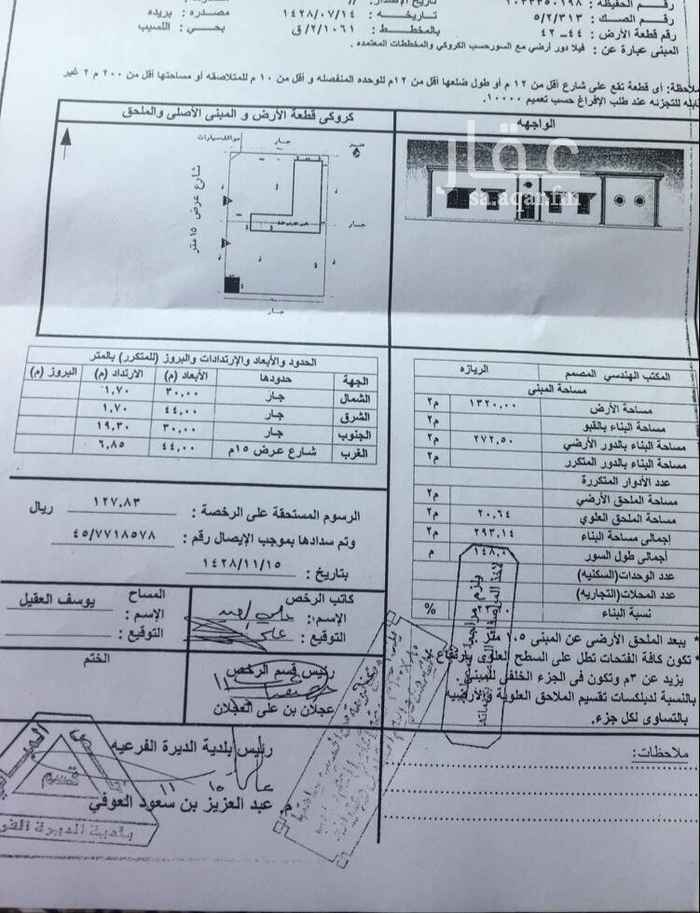 رقم الحفيظه : ١٠٣٣٣٥٠١٩٨
رقم الصك : ٥/٢/٣١٣ تاريخه : ١٤٢٨/٠٧/١٤ مصدره : بريده
رقم قطعة الأرض : ٤٤-٤٢ بالمخطط : ٢/١٠٦١/ق بحي : اللسيب
المبنى عبارة عن : فيلا دور أرضي مع السور حسب الكروكي والمخططات المعتمده .
ملاحظة: أى قطعة تقع على شارع أقل من ١٢ م أو طول ضلعها أقل من ١٢م للوحده المنفصله و أقل من ١٠ م للمتلاصقه أو مساحتها أقل من ٢٠٠ م٢ غير
قابله للتجزئه عند طلب الإفراغ حسب تعميم ١٠٠٠٠.
الواجهه
كروكى قطعة الأرض و المبنى الأصلى والملحق
مواقف سيارات
جار
شارع عرض ١٥ متر
جار
جار
عقار
sa.aqar.fm
المكتب الهندسي المصمم الريازه
مساحة المبنى
مساحة الأرض ١٣٢٠,٠٠ م٢
مساحة البناء بالقبو م٢
مساحة البناء بالدور الأرضي ٢٧٢,٥٠ م٢
مساحة البناء بالدور المتكرر م٢
عدد الأدوار المتكررة
مساحة الملحق الأرضي م٢
مساحة الملحق العلوي ٢٠,٦٤ م٢
إجمالى مساحة البناء ٢٩٣,١٤ م٢
أجمالى طول السور ١٤٨,٠ م
عدد الوحدات(السكنيه)
عدد المحلات(التجاريه)
نسبة البناء %
* يبعد الملحق الأرضى عن المبنى ١,٥ متر
* تكون كافة الفتحات تطل على السطح العلوى بارتفاع
يزيد عن ٣م وتكون فى الجزء الخلفى للمبنى.
بالنسبة لدبلكسات تقسيم الملاحق العلوية والأرضية
بالتساوى لكل جزء.
ملاحظات:
الحدود والأبعاد والإرتدادات والبروز (للمتكرر) بالمتر
الجهة حدودها الأبعاد (م) الارتداد (م) البروز (م)
الشمال جار ٣٠,٠٠ ١,٧٠
الشرق جار ٤٤,٠٠ ١,٧٠
الجنوب جار ٣٠,٠٠ ١٩,٣٠
الغرب شارع عرض ١٥م ٤٤,٠٠ ٦,٨٥
الرسوم المستحقة على الرخصة : ١٢٧,٨٣ ريال
وتم سدادها بموجب الإيصال رقم : ٤٥/٧٧١٨٥٧٨
بتاريخ : ١٤٢٨/١١/١٥
كاتب الرخص
الإسم:
التوقيع :
المساح
الإسم : يوسف العقيل
التوقيع :
رئيس قسم الرخص
عجلان بن على العجلان
الختم
رئيس بلدية الديرة الفرعيه
م عبد العزيز بن سعود العوفي
قسم
بلدية الديرة